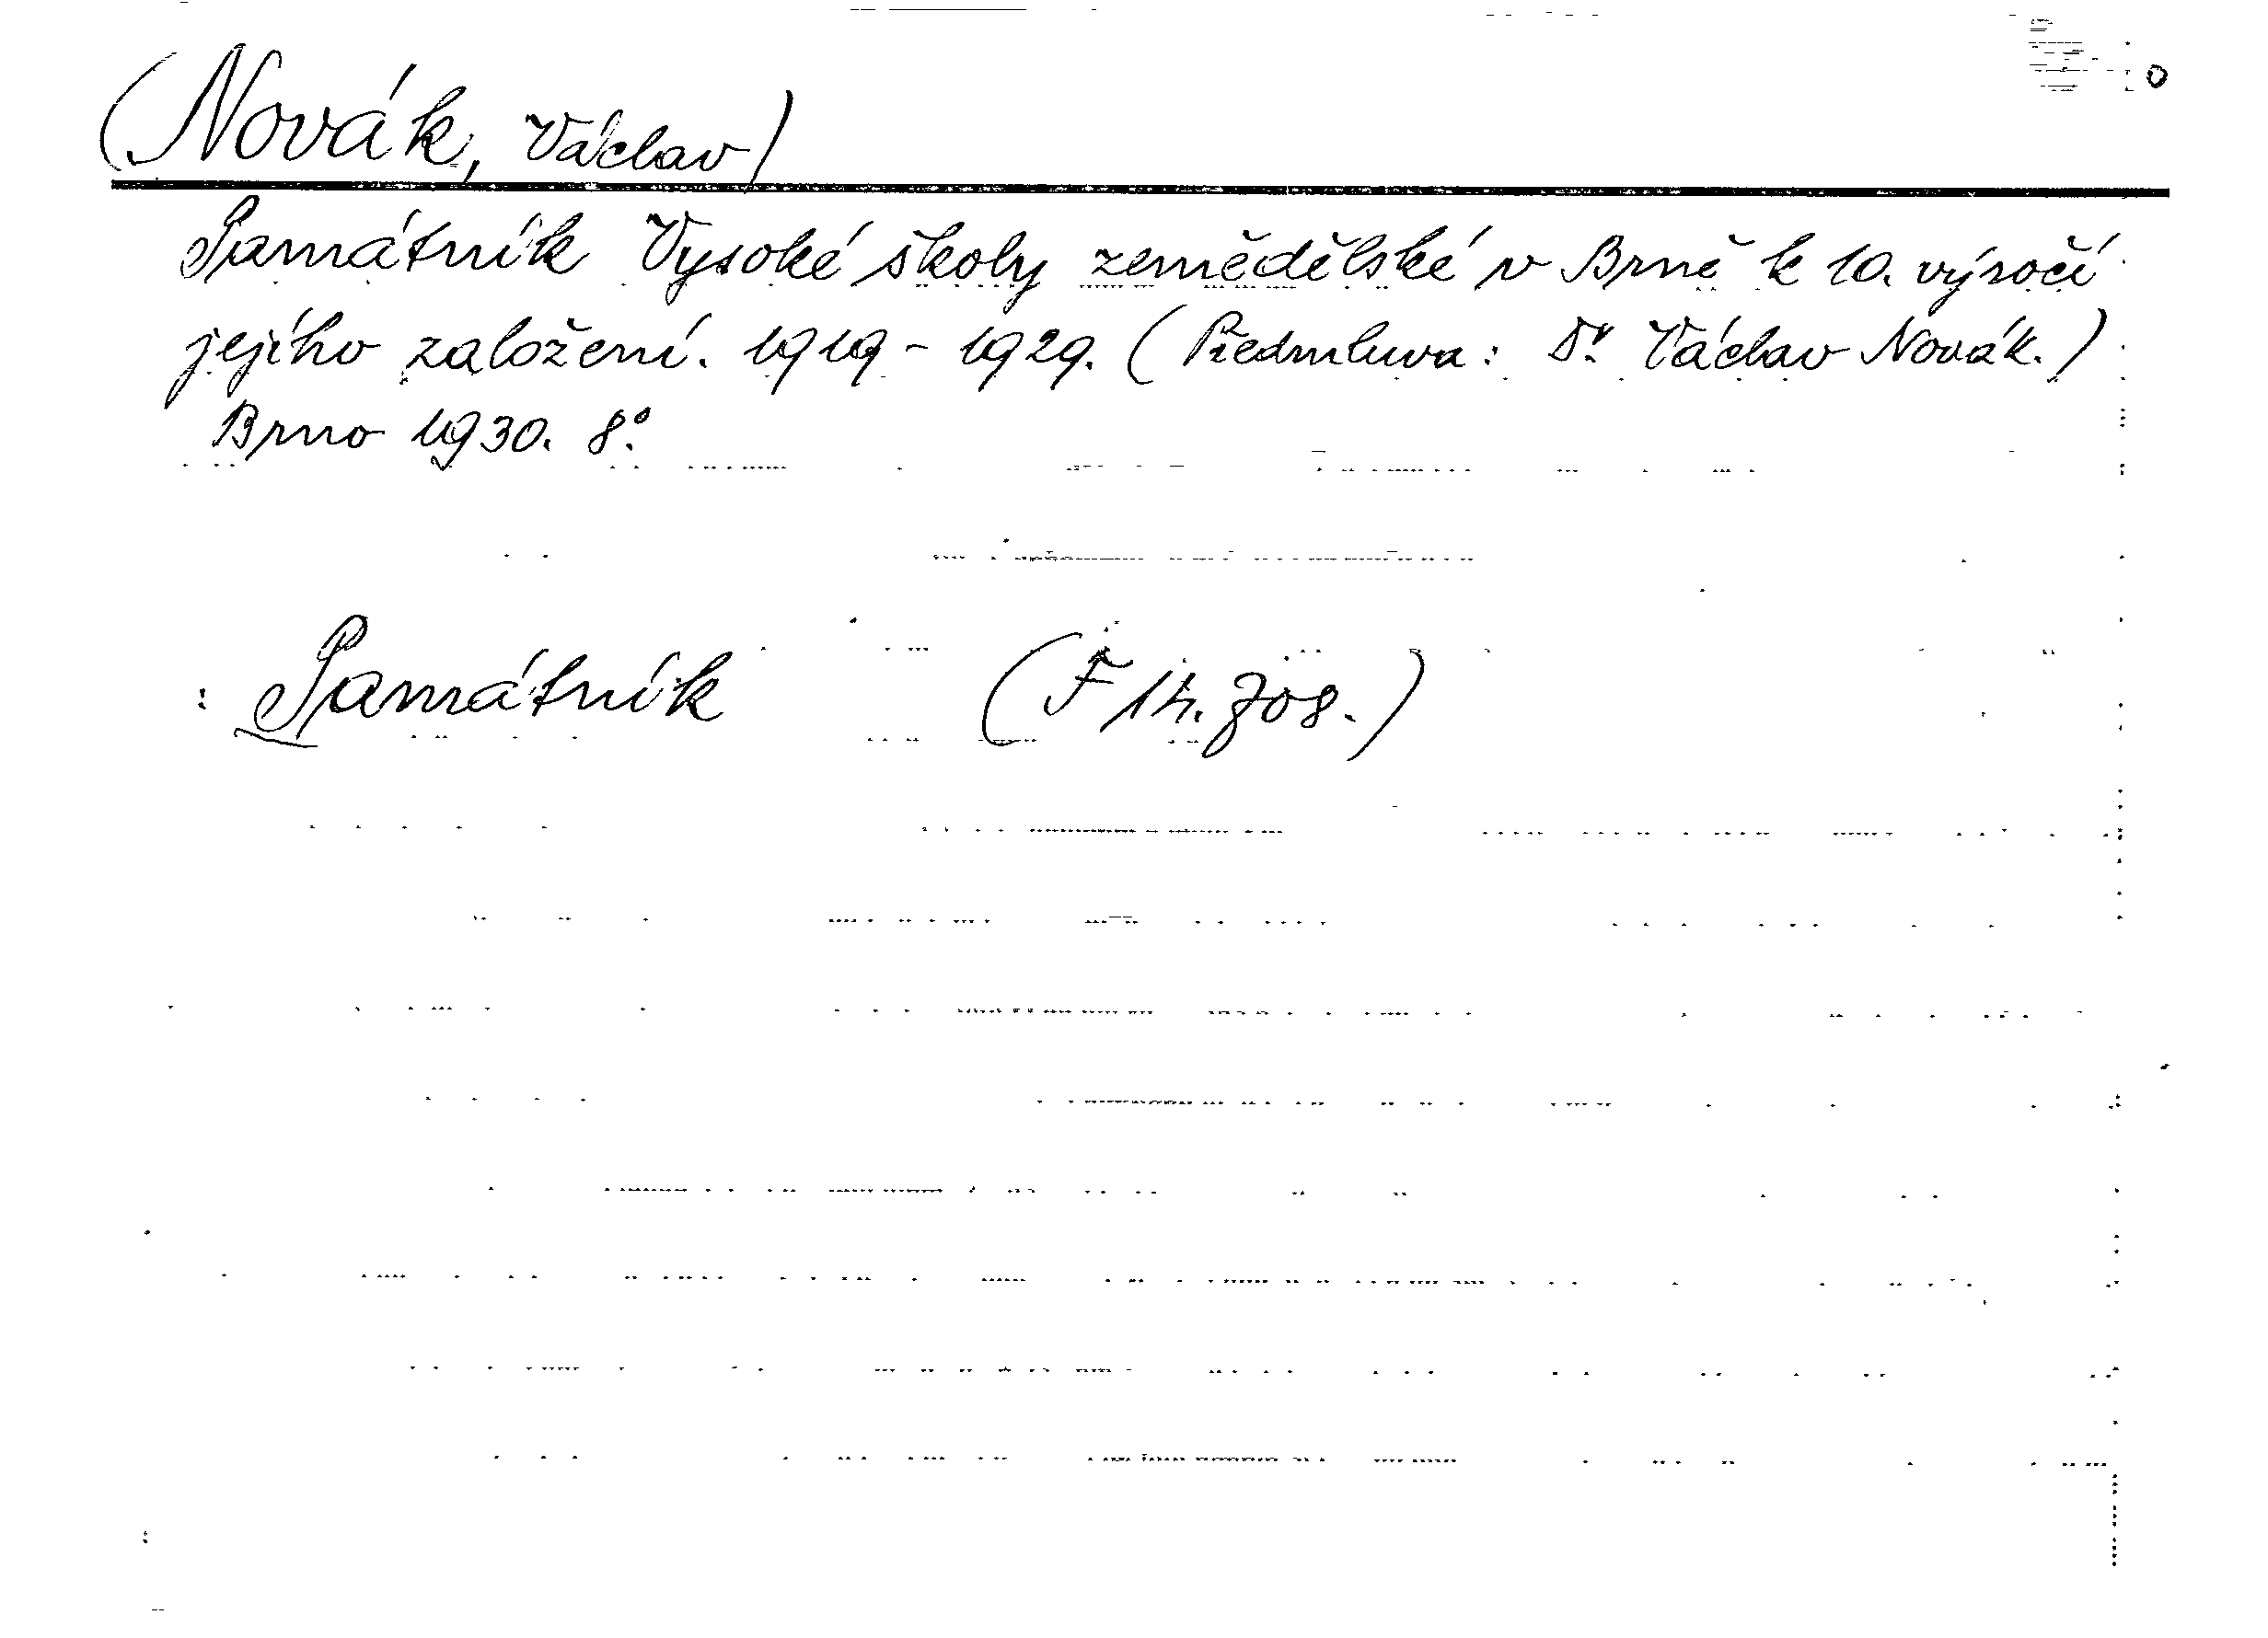 (Novák, Václav)
Památník Vysoké školy zemědělské v Brně k 10. výročí
jejího založení. 1919 - 1929. (Předmluva: Dr. Václav Novák.)
Brno 1930. 8°.
: Památník (F 14.708.)